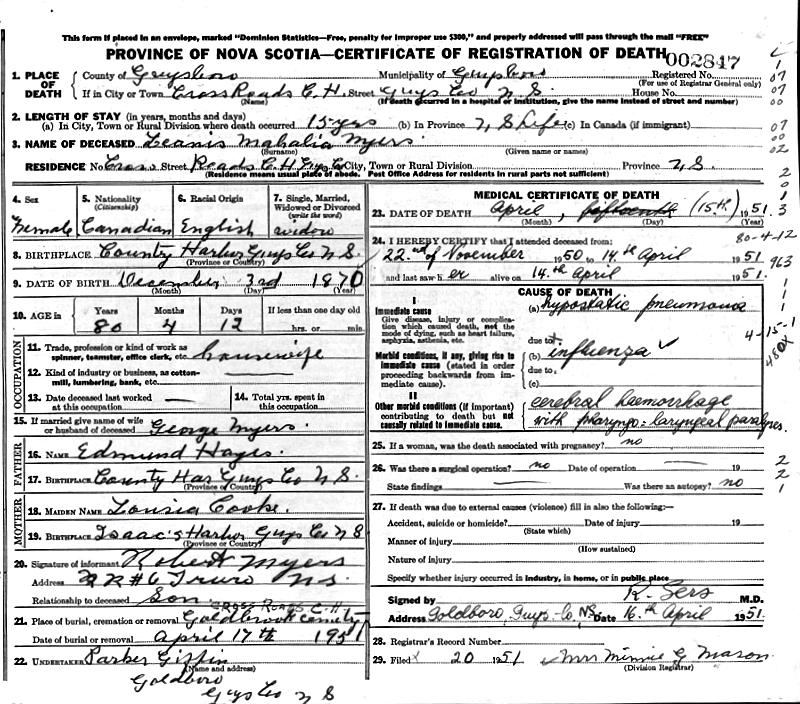 This form if placed in an envelope, marked "Dominion Statistics—Free, penalty for improper use $300," and properly addressed will pass through the mail "FREE"
PROVINCE OF NOVA SCOTIA—CERTIFICATE OF REGISTRATION OF DEATH 002847
1. PLACE OF DEATH
County of Guysboro Municipality of Guysboro Registered No.
(For use of Registrar General only)
If in City or Town Cross Roads C. H. Street Guys Co N. S. House No.
(Name) (If death occurred in a hospital or institution, give the name instead of street and number)
2. LENGTH OF STAY (in years, months and days)
(a) In City, Town or Rural Division where death occurred 15 yrs (b) In Province N. S Life (c) In Canada (if immigrant)
3. NAME OF DECEASED Mahalia Myers
(Surname) (Given name or names)
RESIDENCE No. Cross Street Roads C. H Guys Co City, Town or Rural Division Province N. S.
(Residence means usual place of abode. Post Office Address for residents in rural parts not sufficient)
4. Sex
Female
5. Nationality
(Citizenship)
Canadian
6. Racial Origin
English
7. Single, Married, Widowed or Divorced
(write the word)
widow
8. BIRTHPLACE Country Harbor Guys Co N. S.
(Province or Country)
9. DATE OF BIRTH December 3rd 1870
(Month) (Day) (Year)
10. AGE in
Years Months Days If less than one day old
80 4 12 hrs. or min.
OCCUPATION
11. Trade, profession or kind of work as spinner, teamster, office clerk, etc. housewife
12. Kind of industry or business, as cotton-mill, lumbering, bank, etc. —
13. Date deceased last worked at this occupation —
14. Total yrs. spent in this occupation
15. If married give name of wife or husband of deceased George Myers
FATHER
16. NAME Edmund Hayes
17. BIRTHPLACE Country Har Guys Co N. S.
(Province or Country)
MOTHER
18. MAIDEN NAME Cooke
19. BIRTHPLACE Isaac's Harbor Guys Co N S
(Province or Country)
20. Signature of informant Robert Myers
Address R R #6 Truro N.S.
Relationship to deceased Son
CROSS ROADS C. H
21. Place of burial, cremation or removal Goldbrook cemetery
Date of burial or removal April 17th 1951
22. UNDERTAKER Parker Giffin
(Name and address)
Goldboro
Guys Co N S
MEDICAL CERTIFICATE OF DEATH
23. DATE OF DEATH April, fifteenth (15th) 1951
(Month) (Day) (Year)
80-4-12
24. I HEREBY CERTIFY that I attended deceased from:
22nd of November 1950 to 14th April 1951
and last saw her alive on 14th April 1951.
963
CAUSE OF DEATH
I
Immediate cause
Give disease, injury or complication which caused death, not the mode of dying, such as heart failure, asphyxia, asthenia, etc.
(a) hypostatic pneumonia
due to
Morbid conditions, if any, giving rise to immediate cause (stated in order proceeding backwards from immediate cause).
(b) influenza ✓
due to:
(c)
4-15-1
480x
II
Other morbid conditions (if important) contributing to death but not causally related to immediate cause.
cerebral haemorrhage
with pharyngo-laryngeal paralyses.
25. If a woman, was the death associated with pregnancy? no
26. Was there a surgical operation? no Date of operation — 19
State findings — Was there an autopsy? no
27. If death was due to external causes (violence) fill in also the following:—
Accident, suicide or homicide? Date of injury 19
(State which)
Manner of injury
(How sustained)
Nature of injury
Specify whether injury occurred in industry, in home, or in public place
Signed by K. Sers M.D.
Address Goldboro, Guys. Co. NS. Date 16th April 1951.
28. Registrar's Record Number
29. Filed 20 1951 Mrs Minnie G Mason
(Division Registrar)